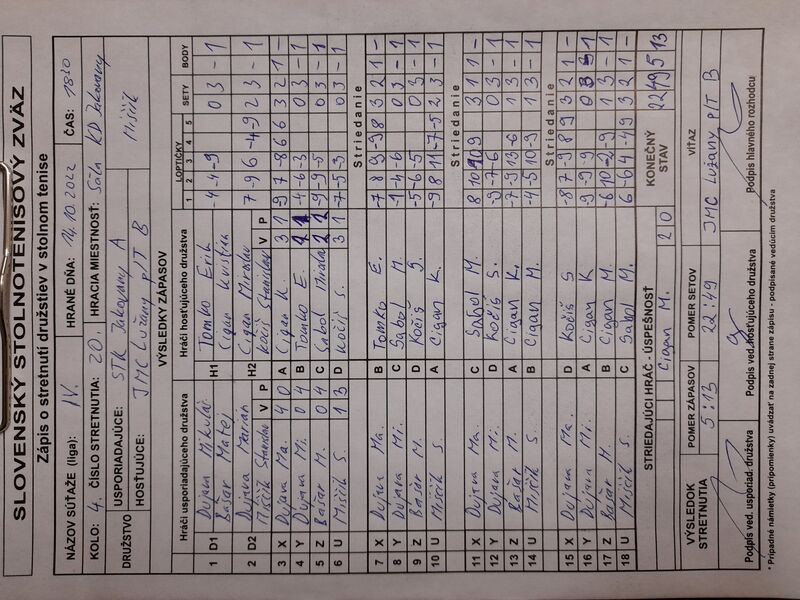 SLOVENSKÝ STOLNOTENISOVÝ ZVÄZ
Zápis o stretnutí družstiev v stolnom tenise
NÁZOV SÚŤAŽE (liga): IV. HRANÉ DŇA: 14.10.2022 ČAS: 18:30
KOLO: 4. ČÍSLO STRETNUTIA: 20. HRACIA MIESTNOSŤ: Sála KD Jakovany
DRUŽSTVO USPORIADAJÚCE: STK Jakovany A
HOSŤUJÚCE: JMC Lužany p/T B
VÝSLEDKY ZÁPASOV
Hráči usporiadajúceho družstva Hráči hosťujúceho družstva LOPTIČKY SETY BODY
V P V P 1 2 3 4 5
1 D1 Dujava Mikuláš H1 Tomko Erik -4 -4 -9 0 3 - 1
Bašár Matej Cigan Kristián
2 D2 Dujava Marián H2 Cigan Miroslav 7 -9 6 -4 -9 2 3 - 1
Miščík Stanislav Kočiš Stanislav
3 X Dujava Ma. 4 0 A Cigan K. 3 1 9 7 -8 6 6 3 2 1 -
4 Y Dujava Mi. 0 4 B Tomko E. -4 -6 -3 0 3 - 1
5 Z Bašár M. 0 4 C Sabol -9 -9 -5 0 3 - 1
6 U Miščík S. 1 3 D Kočiš S. 3 1 -7 -5 -3 0 3 - 1
Striedanie
7 X Dujava Ma. B Tomko E. -7 8 9 -9 8 3 2 1 -
8 Y Dujava Mi. C Sabol M. -1 -4 -6 0 3 - 1
9 Z Bašár M. D Kočiš S. -5 -6 -5 0 3 - 1
10 U Miščík S. A Cigan K. -9 8 11 -7 -5 2 3 - 1
Striedanie
11 X Dujava Ma. C Sabol M. 3 1 1 -
12 Y Dujava Mi. D Kočiš S. -9 -7 -6 0 3 - 1
13 Z Bašár M. A Cigan K. -7 -9 13 -6 1 3 - 1
14 U Miščík S. B Cigan M. -4 -5 10 -9 1 3 - 1
Striedanie
15 X Dujava Ma. D Kočiš S -8 7 -9 8 9 3 2 1 -
16 Y Dujava Mi. A Cigan K -9 -9 -9 0 3 - 1
17 Z Bašár M. B Cigan M. -6 10 -2 -9 1 3 - 1
18 U Miščík S. C Sabol M. 6 -6 4 -4 9 3 2 1
STRIEDAJÚCI HRÁČ - ÚSPEŠNOSŤ KONEČNÝ STAV 22 49 5 13
Cigan M. 2 0
VÝSLEDOK STRETNUTIA POMER ZÁPASOV POMER SETOV VÍŤAZ
5:13 22:49 JMC Lužany p/T B
Podpis ved. usporiad. družstva Podpis ved. hosťujúceho družstva Podpis hlavného rozhodcu
* Prípadné námietky (pripomienky) uvádzať na zadnej strane zápisu - podpísané vedúcim družstva